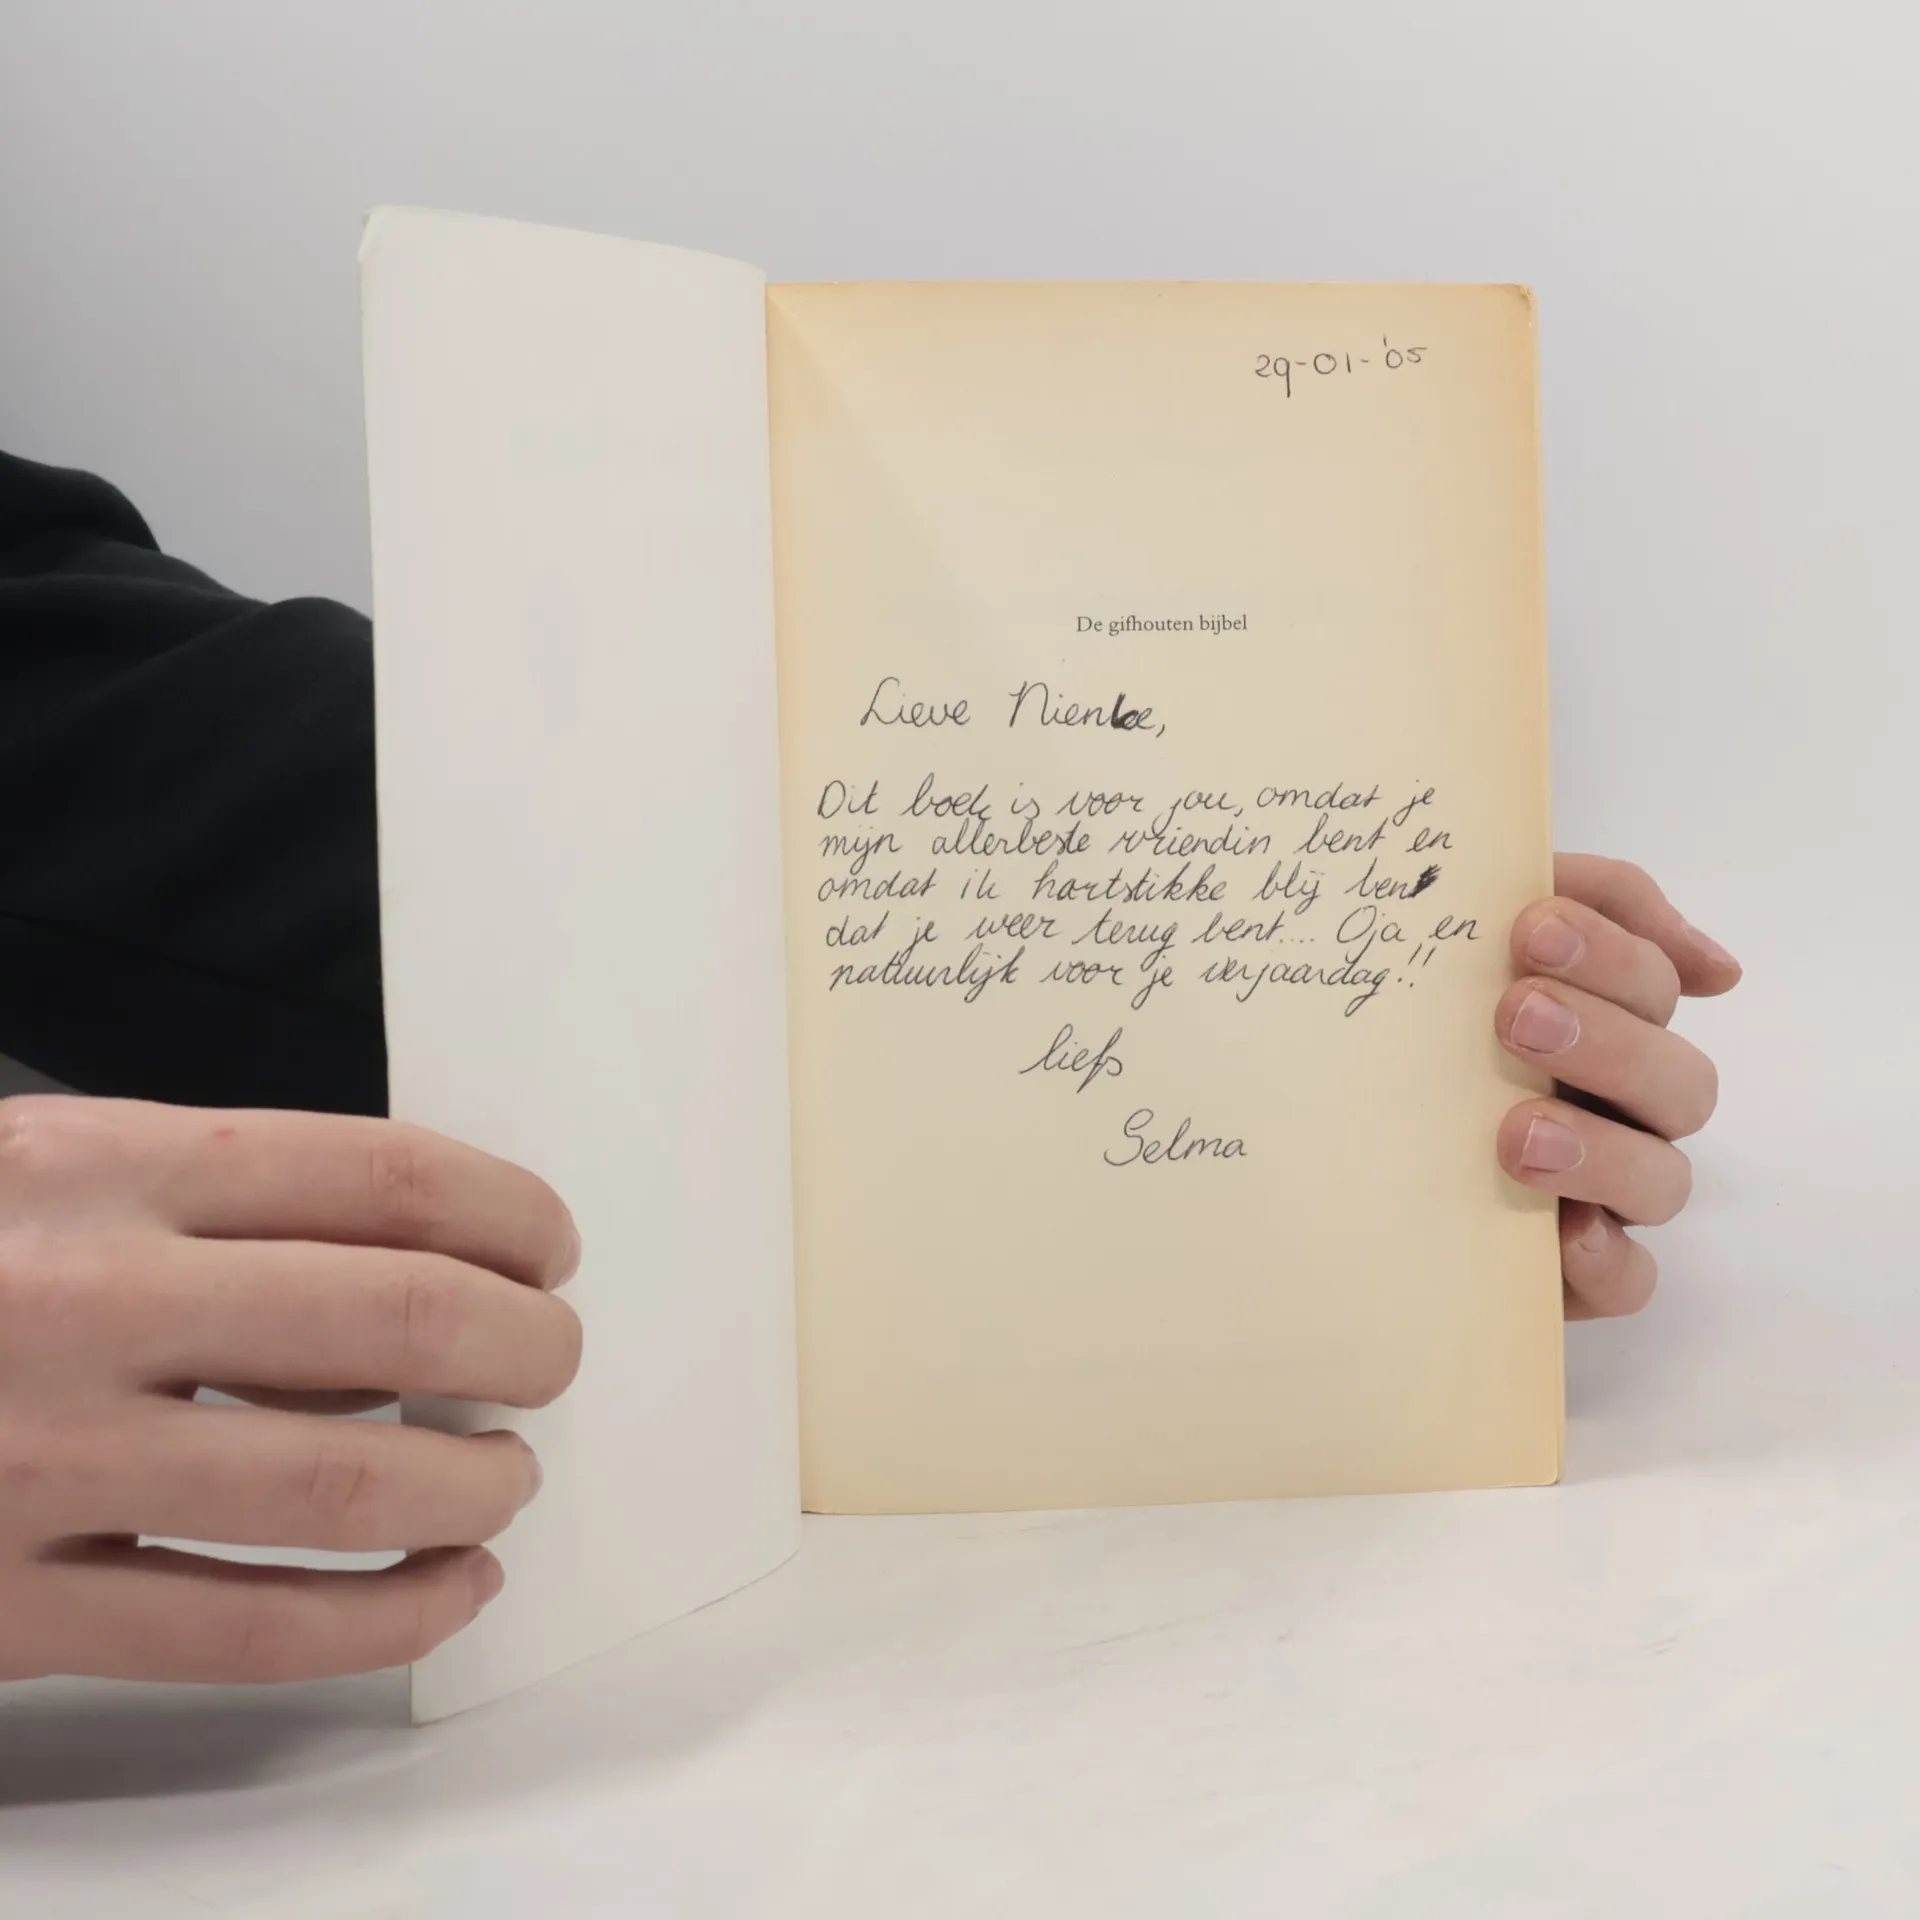 29-01-'05
De gifhouten bijbel
Lieve Nienke,
Dit boek is voor jou, omdat je
mijn allerbeste vriendin bent en
omdat ik hartstikke blij ben
dat je weer terug bent.... Oja, en
natuurlijk voor je verjaardag!!
liefs
Selma